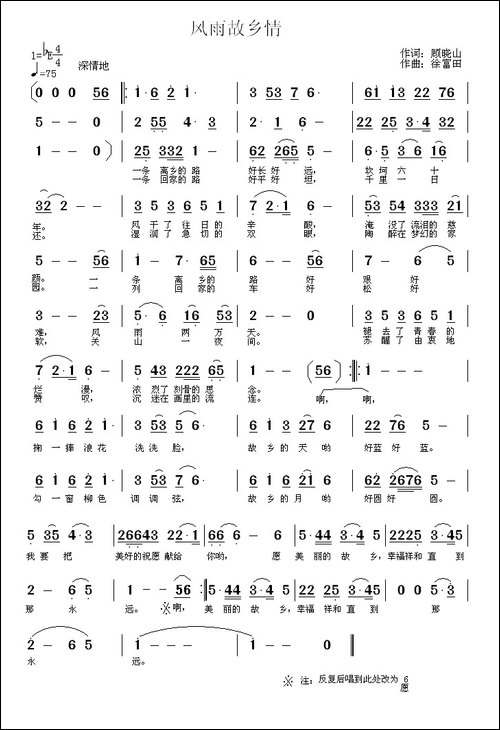 风雨故乡情
1=♭E 4/4
♩=75 深情地
作词：顾晓山
作曲：徐富田
(0 0 0 56 |: 1·6 2 1 · | 3 53 7 6 · | 61 13 22 76 |
5 - - 0 | 2 55 4·3 | 2·1 6 - | 22 25 3·4 32 |
1 - - 0) | 25 332 1 - | 62 265 5 - | 6·5 35 6 16 |
一条 离乡的 路 好长 好 远， 坎 坷 六 十
一条 回家的 路 好平 好 坦， 千 里 一 日
32 2 - - | 3 5 3 5 6 3 5 | 7 2·1 6 - | 53 54 333 21 |
年。 风 干 了 往 日 的 辛 酸， 淹 没了 流泪的 慈
还。 湿 润 了 急 切 的 双 眼， 陶 醉在 梦幻的 家
5 - - 56 | 1 - 7· 65 | 6 - - 56 | 7 - 6 5 |
颜。 一 条 离 乡 的 路 好 艰 好
园。 一 列 回 家 的 车 好 松 好
3 - - 23 | 5· 6 16 53 | 2 - - 0 | 3 5 3 5 6 3 5 |
难， 风 雨 两 万 天。 褪 去 了 青 春 的
软， 关 山 一 夜 间。 苏 醒 了 由 衷 地
7 2·1 6 - | 5 43 222 65 | 1 - - (56) :| 1 - 1 - |
烂 漫， 浓 烈了 刻骨的 思 念。 啊， 啊，
赞 叹， 沉 迷在 画里的 流 连。
6 1 2 1 · | 3 53 5 - | 6 1 7 6 · | 62 2676 5 - |
掬 一 捧 浪 花 洗 洗 脸， 故 乡 的 天 哟 好蓝 好 蓝。
6 1 2 1 · | 3 53 7 6 · | 6 1 7 6 · | 62 2676 5 - |
勾 一 窗 柳 色 调 调 弦， 故 乡 的 月 哟 好圆 好 圆。
5 35 4·3 | 26643 22·1 | 66 6 - 6 | 5·44 3·4 5 | 2225 3·45 |
我 要 把 美好的祝愿 献给 你哟， 愿 美 丽的 故 乡，幸福祥和 直 到
2 - 65 | 1 - - 56 :| 5·44 3·4 5 | 22 25 3·45 | 2 - 6 5 |
那 永 远。※啊， 美 丽的 故 乡，幸福 祥和 直 到 那
2 - 6 5 | 1 - - - | 1 - - 0 ‖
永 远。
※ 注：反复后唱到此处改为 6
愿